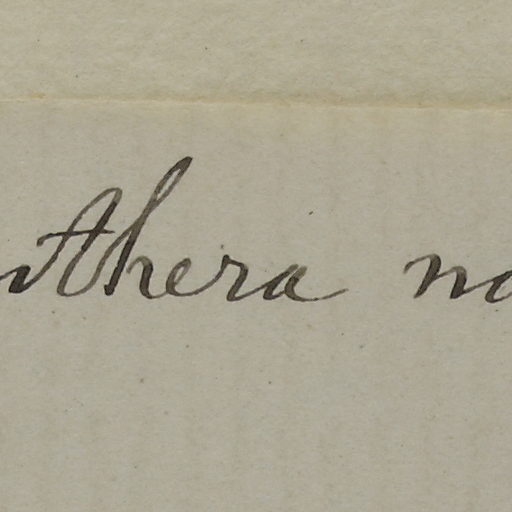 thera no